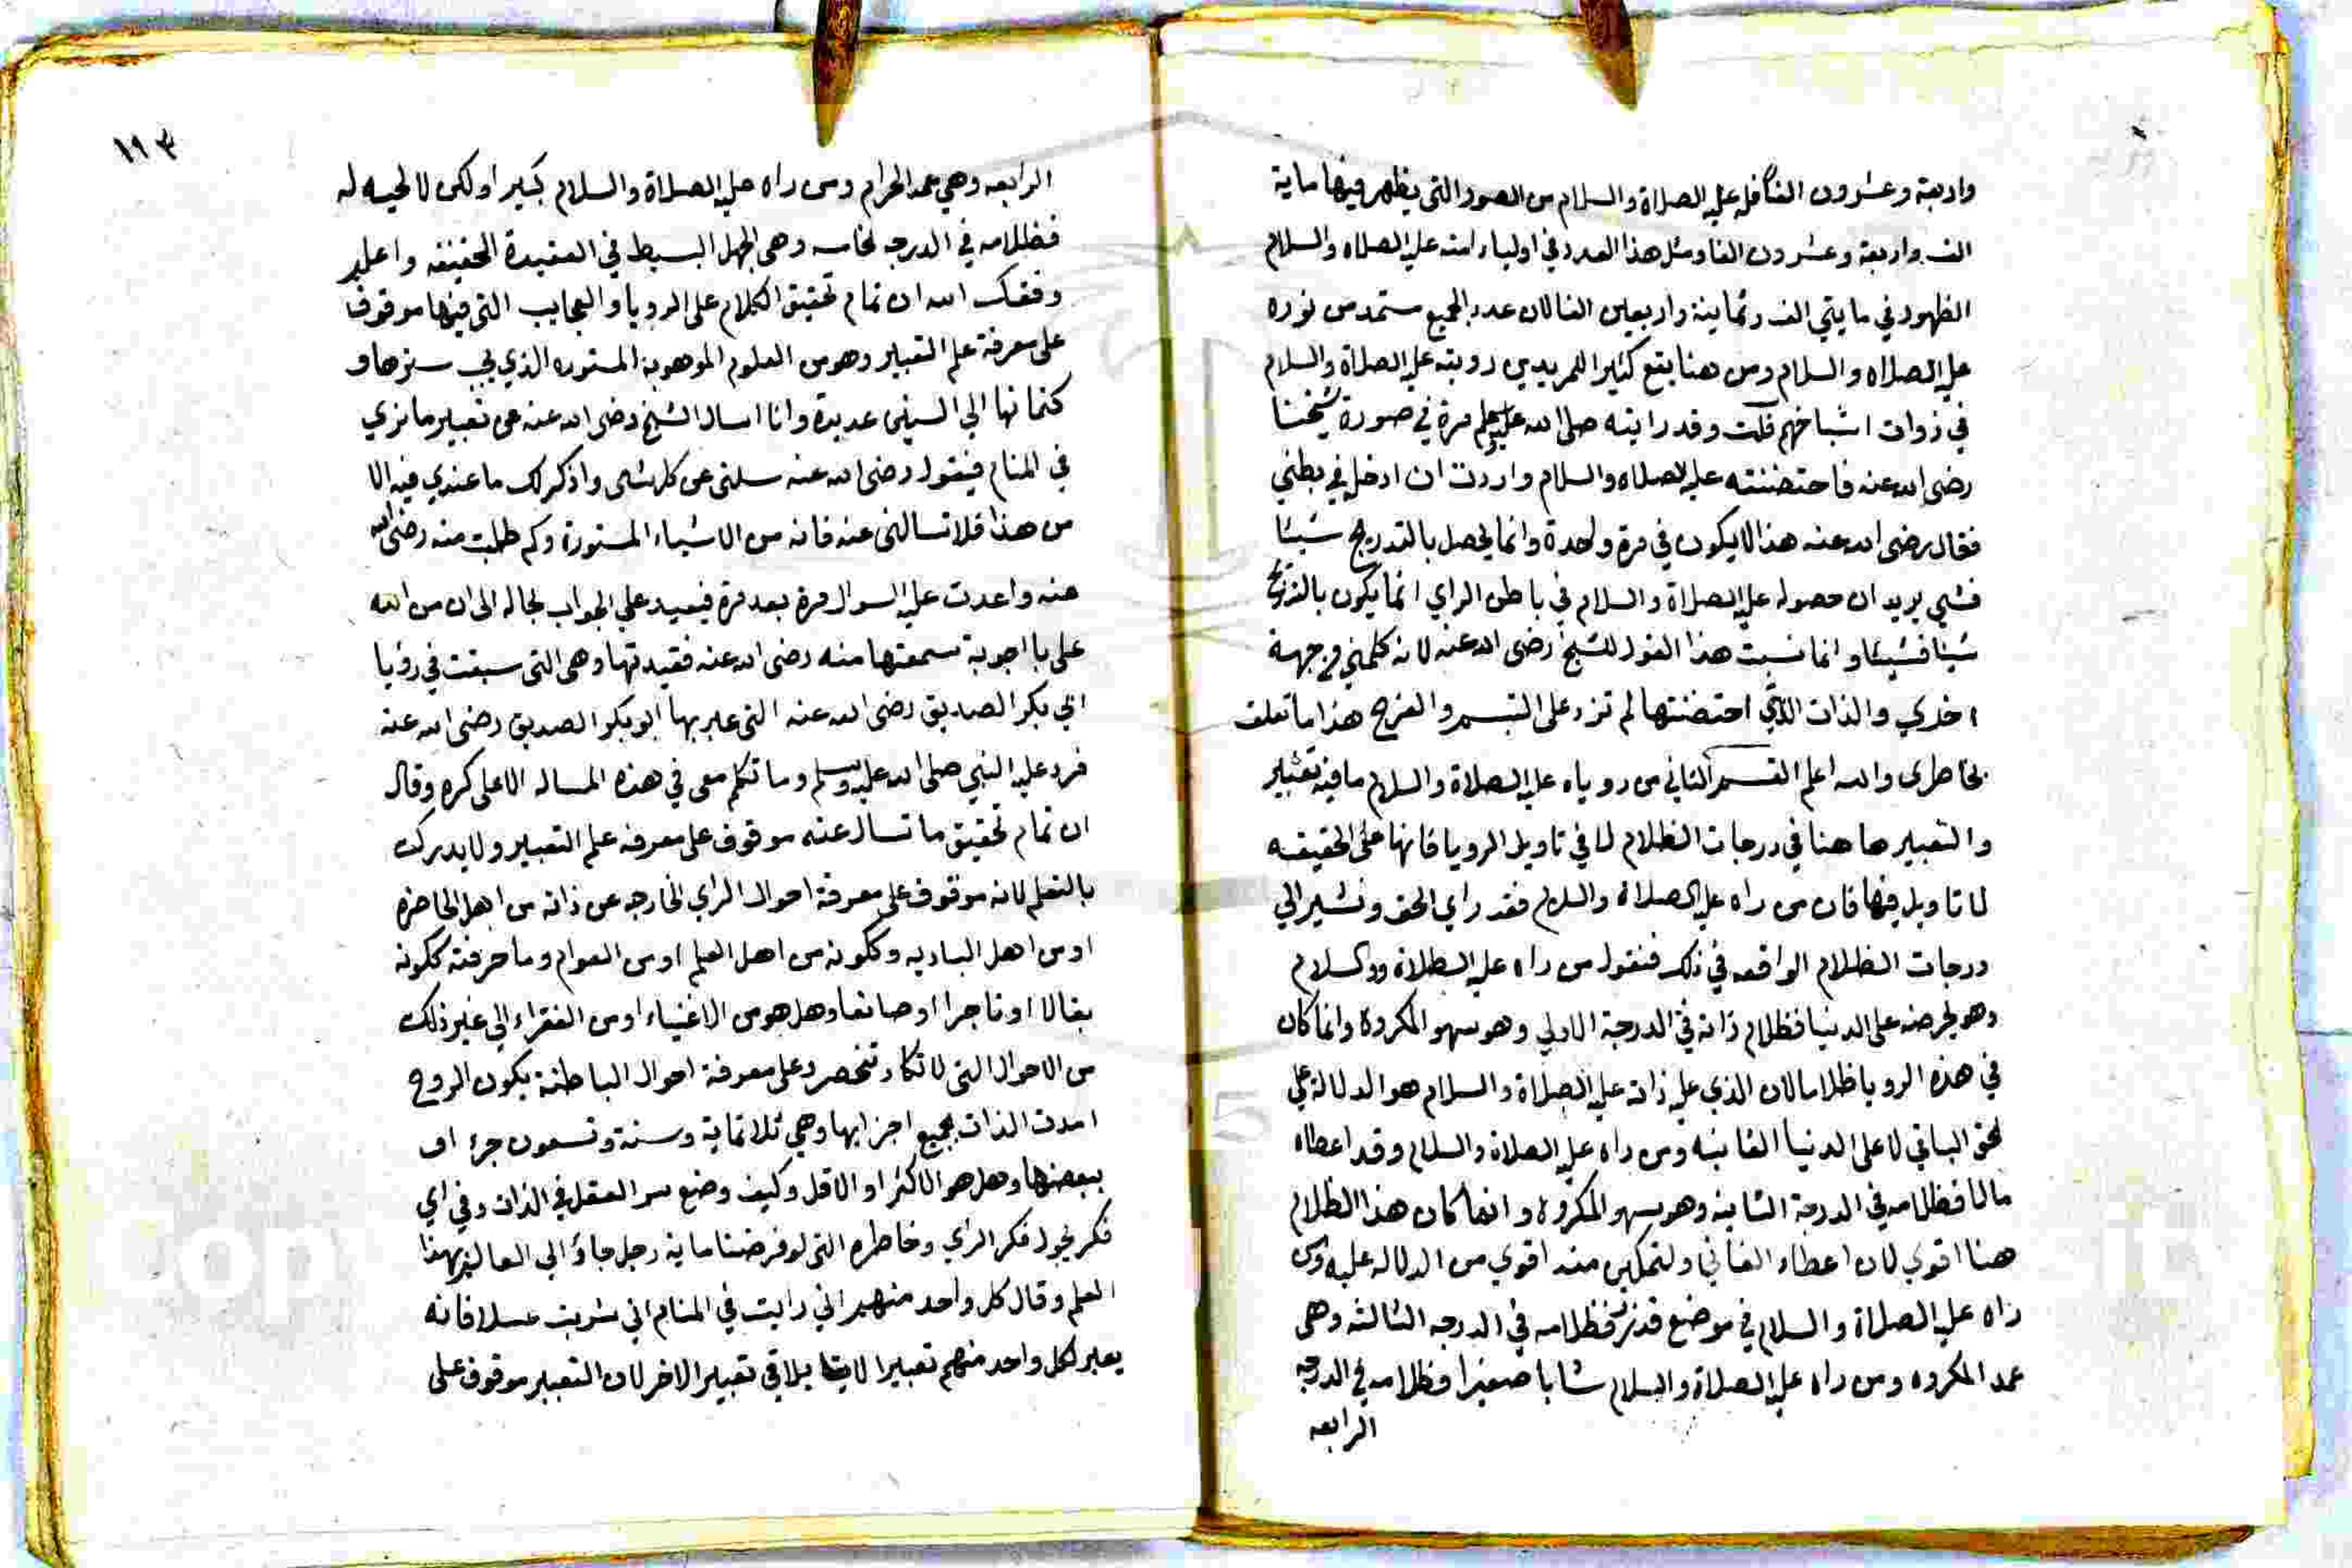 واربعة وعشرون الفا فله عليه الصلاة والسلام من الصور التي يظهر فيها ماية
الف واربعة وعشرون الفا ومثل هذا العدد في اولياء امته عليه الصلاه والسلام
الظهور في مايتي الف وثمانية واربعين الفا لان عدد الجميع مستمد من نوره
عليه الصلاه والسلام ومن هنا يقع كثيرا للمريدين رويته عليه الصلاة والسلام
في ذوات اشياخهم قلت وقد رايته صلى الله عليه وسلم مرة في صورة شيخنا
رضى الله عنه فاحتضنته عليه الصلاه والسلام واردت ان ادخله في بطني
فقال رضى الله عنه هذا لا يكون في مرة واحدة وانما يحصل بالتدريج شيئا
فشي يريد ان حصوله عليه الصلاة والسلام في باطن الراي انما يكون بالتدريج
شيئا فشيئا وانما نسبت هذا القول للشيخ رضى الله عنه لانه كلمني من جهة
اخري والذات التي احتضنتها لم تزد على التبسم والفرح هذا ما تعلق
بخاطرى والله اعلم القسم الثاني من روياه عليه الصلاة والسلام ما فيه تعبير
والتعبير ها هنا في درجات الظلام لا في تاويل الرويا فانها على الحقيقه
لا تاويل فيها فان من راه عليه الصلاة والسلام فقد راي الحق ونشير الي
درجات الظلام الواقعه في ذلك فنقول من راه عليه الصلاة والسلام
وهو يحرضه على الدنيا فظلام ذاته في الدرجة الاولي وهو سهو المكروه وانما كان
في هذه الرويا ظلاما لان الذي عليه ذاته عليه الصلاة والسلام هو الدلالة علي
لحق الباقي لا على الدنيا الفانيه ومن راه عليه الصلاة والسلام وقد اعطاه
مالا فظلامه في الدرجة الثانية وهو سهو المكروه وانما كان هذا الظلام
هنا اقوي لان اعطاء الفاني والتمكين منه اقوي من الدلاله عليه ومن
راه عليه الصلاة والسلام في موضع قذر فظلامه في الدرجه الثالثه وهى
عمد المكروه ومن راه عليه الصلاة والسلام شابا صغيرا فظلامه في الدرجه
الرابعه
١١٣
الرابعه وهي عمد الحرام ومن راه عليه الصلاة والسلام كبيرا ولكن لا لحيه له
فظلامه في الدرجه لخامسه وهى الجهل البسيط في العقيدة الحقيقه واعلم
وفقك الله ان تمام تحقيق الكلام على الرويا والعجايب التى فيها موقوف
على معرفة علم التعبير وهو من العلوم الموهوبه المستوره الذي يجب سترها و
كتمانها الي السنين عديدة وانا اسال الشيخ رضى الله عنه عن تعبير ما نري
في المنام فيقول رضى الله عنه سلنى عن كل شى واذكر لك ما عندي فيه الا
من هذا فلا تسالنى عنه فانه من الاشياء المستورة وكم طلبت منه رضى الله
عنه واعدت عليه السوال مرة بعد مرة فيعيد علي الجواب بحاله الى ان من الله
على باجوبة سمعتها منه رضى الله عنه فقيدتها وهى التى سبقت في رؤيا
ابي بكر الصديق رضى الله عنه التى عبر بها ابو بكر الصديق رضى الله عنه
فرد عليه النبي صلى الله عليه وسلم وما تكلم معى في هذه المساله الا على كره وقال
ان تمام تحقيق ما تسال عنه موقوف على معرفه علم التعبير ولا يدرك
بالتعلم لانه موقوف على معرفة احوال الراي الخارجه عن ذاته من اهل الحاضره
او من اهل الباديه وككونه من اهل العلم او من العوام وما حرفته ككونه
بقالا او تاجرا او صانعا وهل هو من الاغنياء او من الفقراء الي غير ذلك
من الاحوال التى لا تكاد تنحصر وعلى معرفة احوال الباطنة بكون الروح
امدت الذات بجميع اجزايها وهي ثلاثماية وستة وتسعون جزء او
ببعضها وهل هو الاكثر او الاقل وكيف وضع سر العقل في الذات وفي اي
فكر يجول فكر الراي وخاطره التى لو فرضنا ماية رجل جاؤ الي العالم بهذا
العلم وقال كل واحد منهم اني رايت في المنام اني شربت عسلا فانه
يعبر لكل واحد منهم تعبيرا لا يلاقي تعبير الاخر لان التعبير موقوف على